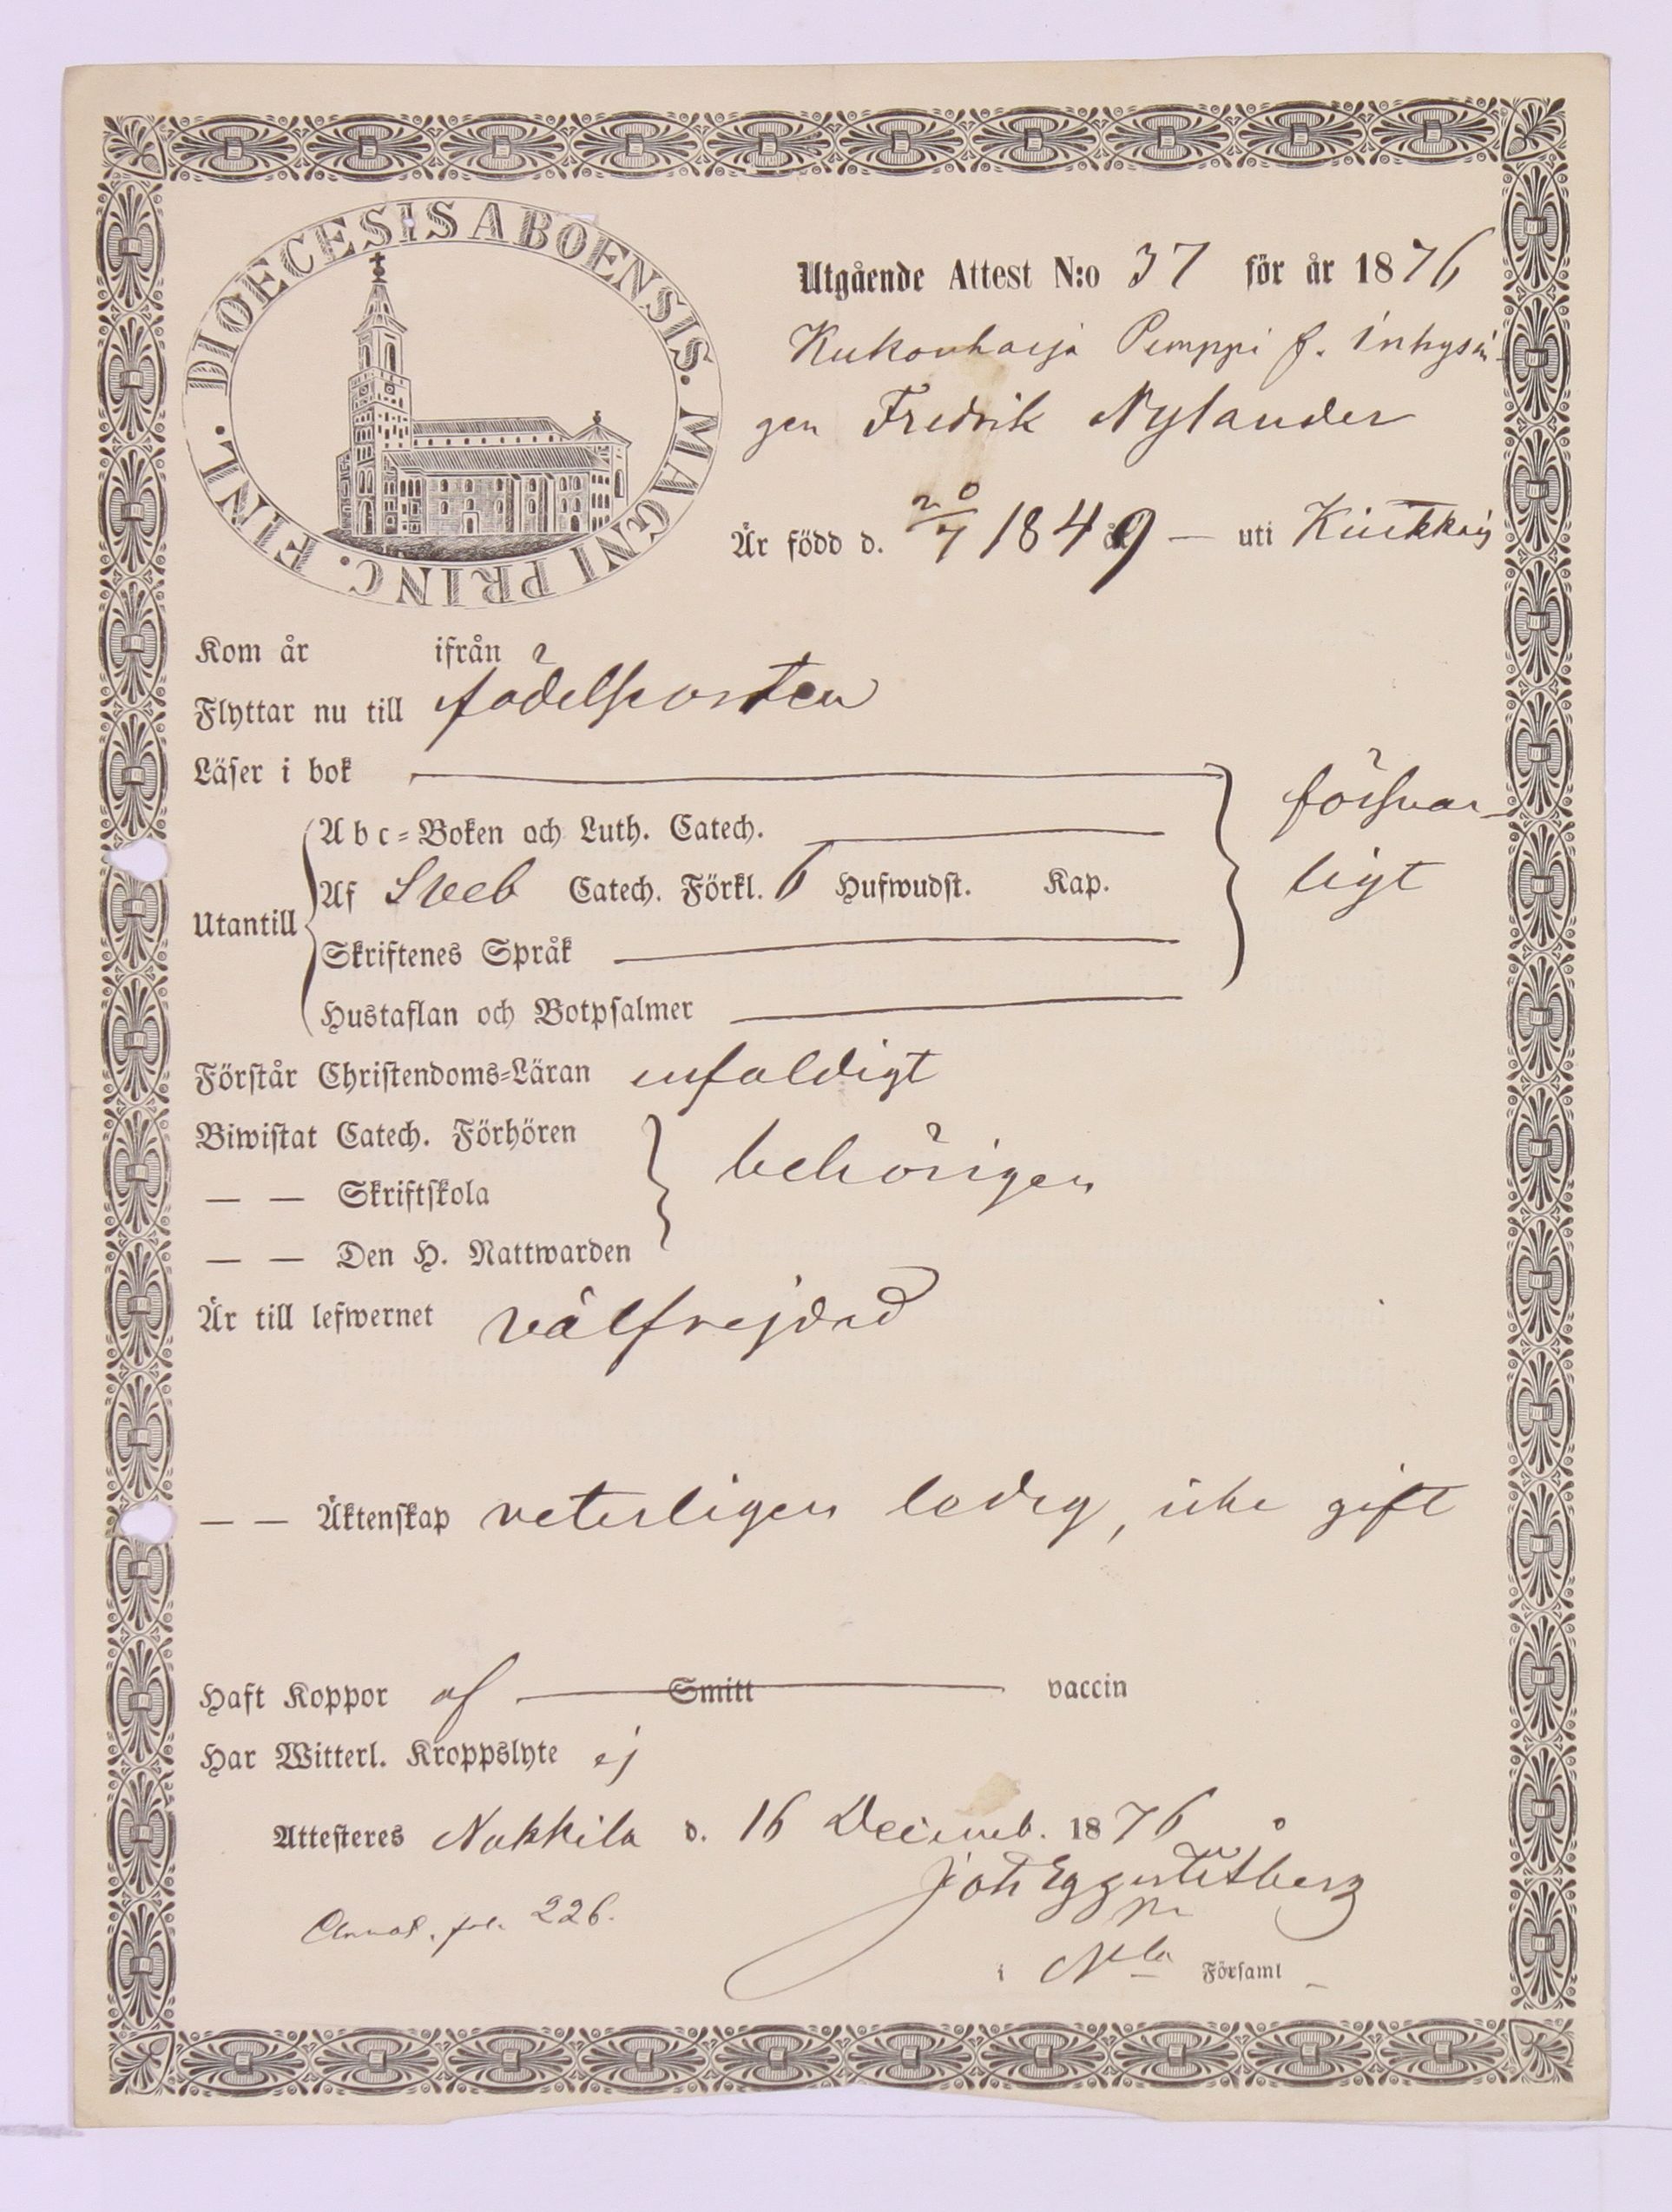 DIOECESIS ABOENSIS. MAGNI PRINC. FINL.
Utgående Attest N:o 37 för år 1876
Pumppi f. inhysin-
gen Fredrik Nylander
Är född d. 20/7 1849 — uti
Kom år ifrån
Flyttar nu till födelseorten
Läser i bok
försvar-
ligt
Abc-Boken och Luth. Catech.
Af Sveb Catech. Förkl. 6 Hufwudst. Kap.
Utantill
Skriftenes Språk
Hustaflan och Botpsalmer
Förstår Christendoms-Läran enfaldigt
Biwistat Catech. Förhören
— — Skriftskola
behörigen
— — Den H. Nattwarden
Är till lefwernet välfrejdad
— — Äktenskap veterligen ledig, icke gift
Haft Koppor af Smitt vaccin
Har Witterl. Kroppslyte ej
Attesteres Nakkila d. 16 Decemb. 1876
Joh Egger
Annot. fol. 226.
i Nla Församl